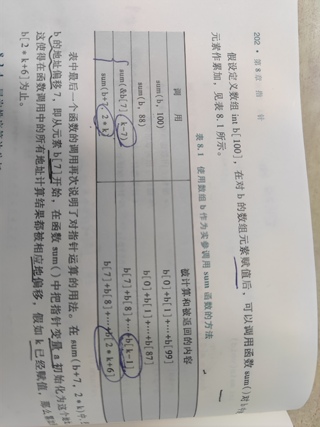 202 · 第 8 章 指 针
假设定义数组 int b[100]，在对 b 的数组元素赋值后，可以调用函数 sum()对
元素作累加，见表 8.1 所示。
表 8.1 使用数组 b 作为实参调用 sum 函数的方法
调 用 被计算和被返回的内容
sum(b, 100) b[0]+b[1]+…+b[99]
sum(b, 88) b[0]+b[1]+…+b[87]
sum(&b[7], k-7) b[7]+b[8]+…+b[k-1]
sum(b+7, 2*k) b[7]+b[8]+…+b[2*k+6]
表中最后一个函数的调用再次说明了对指针运算的用法。在 sum(b+7, 2*k)中，
b 的地址偏移 7，即从元素 b[7]开始，在函数 sum()中把指针变量 a 初始化为这个
这使得在函数调用中的所有地址计算结果都被相应地偏移，假如 k 已经赋值，那么
b[2*k+6]为止。